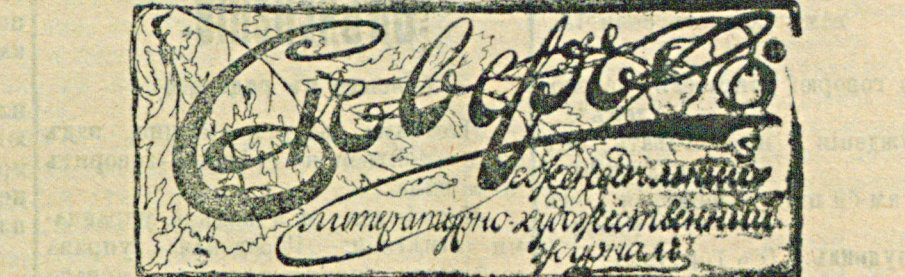 Сѣверъ
еженедѣльный
литературно-художественный
журналъ